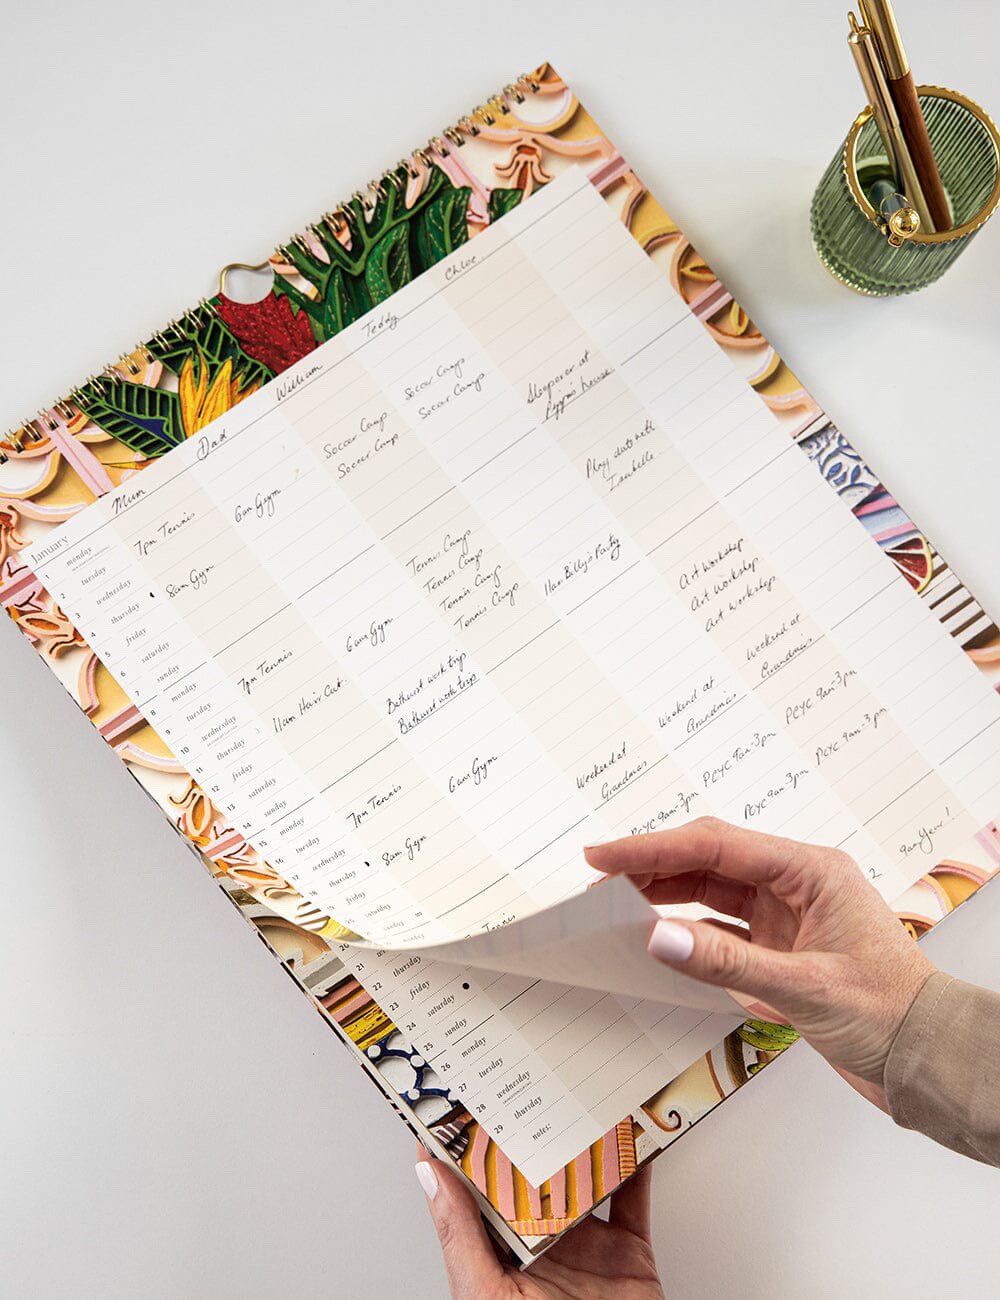 Mum
Dad
William
Teddy
Chloe
January
1 monday
2 tuesday
3 wednesday
4 thursday
5 friday
6 saturday
7 sunday
8 monday
9 tuesday
10 wednesday
11 thursday
12 friday
13 saturday
14 sunday
15 monday
16 tuesday
17 wednesday
18 thursday
19 friday
saturday
21 sunday
7pm Tennis
8am Gym
7pm Tennis
11am Hair Cut
7pm Tennis
8am Gym
6am Gym
6am Gym
Bathurst work trip
Bathurst work trip
6am Gym
Soccer Camp
Soccer Camp
Tennis Camp
Tennis Camp
Tennis Camp
Tennis Camp
Weekend at
Grandmas
PCYC 9am-3pm
Soccer Camp
Soccer Camp
11am Billy's Party
Weekend at
Grandmas
PCYC 9am-3pm
PCYC 9am-3pm
Sleepover at
house
Play date with
Isabelle
Art Workshop
Art Workshop
Art Workshop
Weekend at
Grandmas
PCYC 9am-3pm
PCYC 9am-3pm
2
9am Year 1
Tennis
20
21
22 thursday
23 friday
24 saturday
25 sunday
26 monday
27 tuesday
28 wednesday
29 thursday
notes: